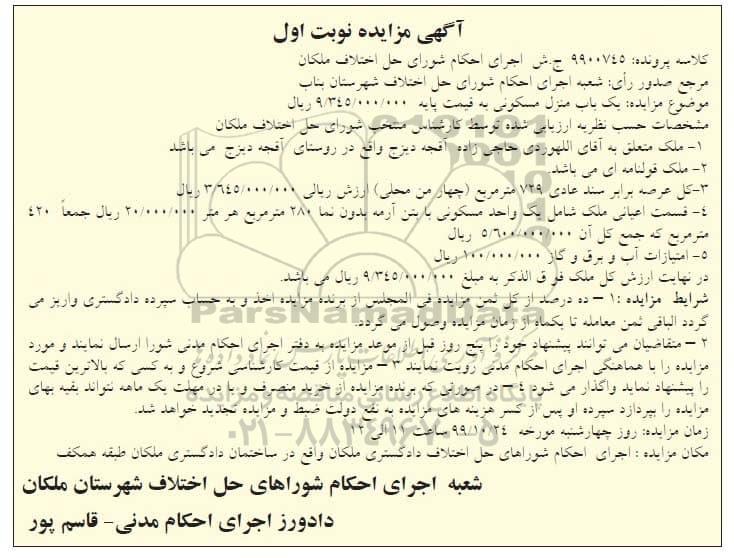 آگهی مزایده نوبت اول
کلاسه پرونده: ۹۹۰۰۷۴۵ ج.ش اجرای احکام شورای حل اختلاف ملکان
مرجع صدور رأی: شعبه اجرای احکام شورای حل اختلاف شهرستان بناب
موضوع مزایده: یک باب منزل مسکونی به قیمت پایه ۹/۳۴۵/۰۰۰/۰۰۰ ریال
مشخصات حسب نظریه ارزیابی شده توسط کارشناس منتخب شورای حل اختلاف ملکان
۱- ملک متعلق به آقای اللهوردی حاجی زاده آقجه دیزج واقع در روستای آقجه دیزج می باشد
۲- ملک قولنامه ای می باشد.
۳-کل عرصه برابر سند عادی ۷۲۹ مترمربع (چهار من محلی) ارزش ریالی ۳/۶۴۵/۰۰۰/۰۰۰ ریال
۴- قسمت اعیانی ملک شامل یک واحد مسکونی با بتن آرمه بدون نما ۲۸۰ مترمربع هر متر ۲۰/۰۰۰/۰۰۰ ریال جمعاً ۴۲۰
مترمربع که جمع کل آن ۵/۶۰۰/۰۰۰/۰۰۰ ریال
۵- امتیازات آب و برق و گاز ۱۰۰/۰۰۰/۰۰۰ ریال
در نهایت ارزش کل ملک فو ق الذکر به مبلغ ۹/۳۴۵/۰۰۰/۰۰۰ ریال می باشد.
شرایط مزایده :۱ – ده درصد از کل ثمن مزایده فی المجلس از برنده مزایده اخذ و به حساب سپرده دادگستری واریز می
گردد الباقی ثمن معامله تا یکماه از زمان مزایده وصول می گردد.
۲ – متقاضیان می توانند پیشنهاد خود را پنج روز قبل از موعد مزایده به دفتر اجرای احکام مدنی شورا ارسال نمایند و مورد
مزایده را با هماهنگی اجرای احکام مدنی رویت نمایند ۳ – مزایده از قیمت کارشناسی شروع و به کسی که بالاترین قیمت
را پیشنهاد نماید واگذار می شود ۴ – در صورتی که برنده مزایده از خرید منصرف و یا در مهلت یک ماهه نتواند بقیه بهای
مزایده را بپردازد سپرده او پس از کسر هزینه های مزایده به نفع دولت ضبط و مزایده تجدید خواهد شد.
زمان مزایده: روز چهارشنبه مورخه ۹۹/۱۰/۲۴ ساعت ۱۱ الی ۱۲
مکان مزایده : اجرای احکام شوراهای حل اختلاف دادگستری ملکان واقع در ساختمان دادگستری ملکان طبقه همکف
شعبه اجرای احکام شوراهای حل اختلاف شهرستان ملکان
دادورز اجرای احکام مدنی- قاسم پور
ParsNamadData
پایگاه اطلاع رسانی مناقصه و مزایده
۰۲۱-۸۸۳۴۹۶۷۰-۵